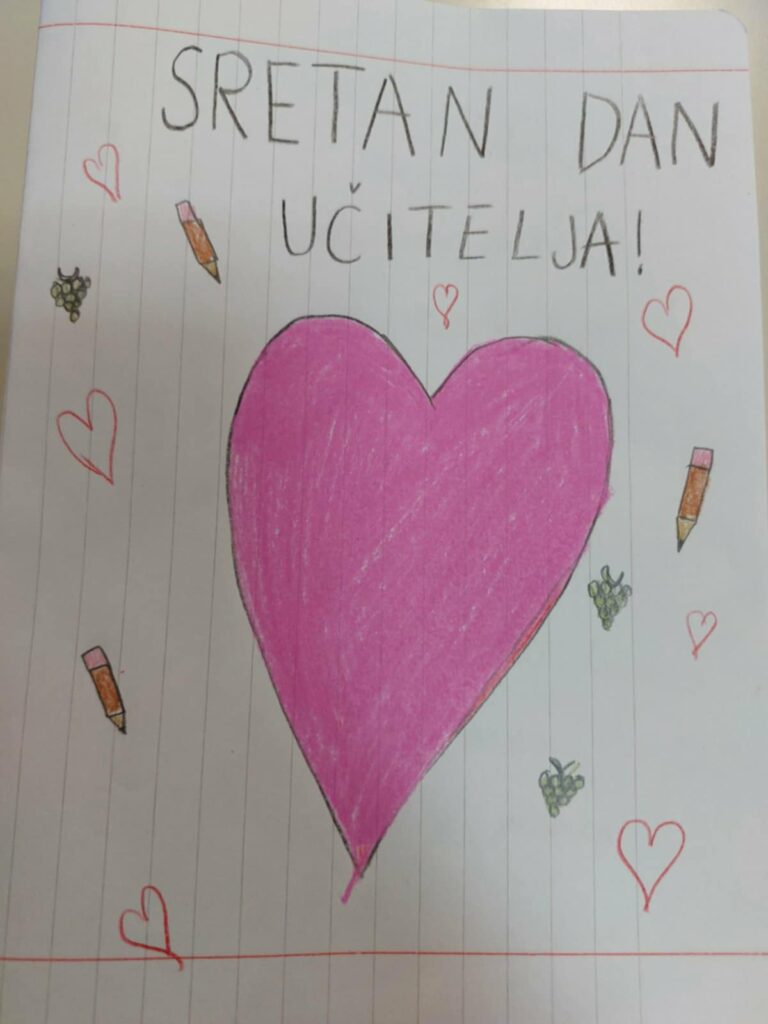 SRETAN DAN
UČITELJA!